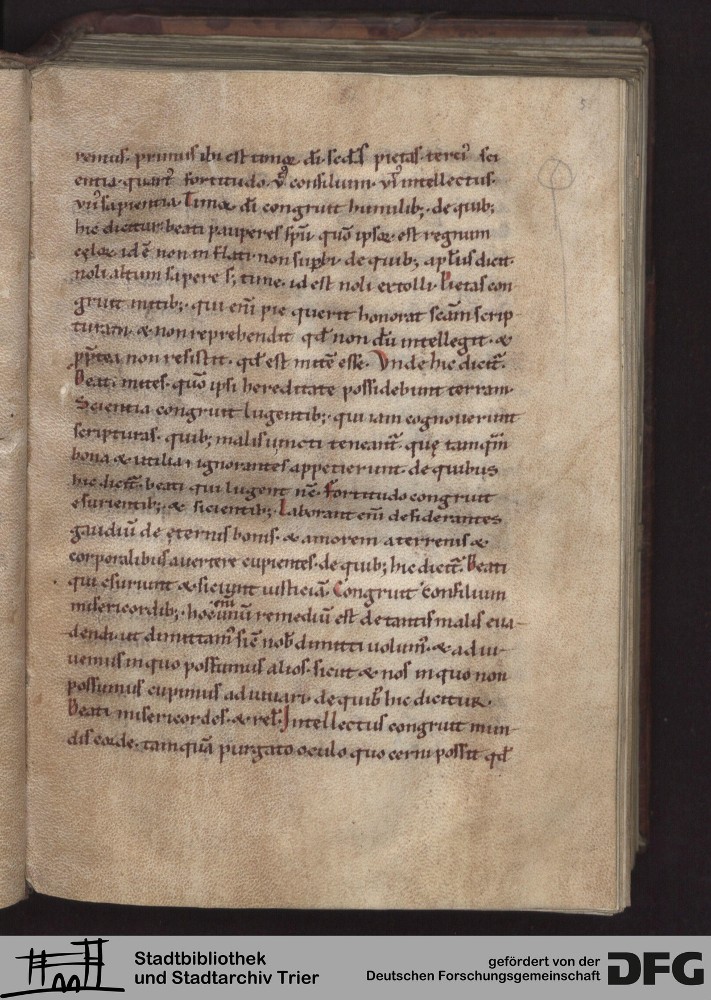 5
remus. primus ibi est timor di. scds pietas. terci' sci
entia. quart' fortitudo. v' consilium. vi' intellectus.
vii' sapientia. Timor di congruit humilib;. de quib;
hic dicitur. beati pauperes spu. quo ipsor est regnum
celor. id e non inflati non supbi. de quib; aplus dicit.
noli altum sapere s; time. id est noli extolli. Pietas con
gruit mitib;. qui eni pie querit honorat scam scrip
turam. & non reprehendit qd non du intellegit. &
ppterea non resistit. qd est mite esse. Unde hic dicit.
Beati mites. quo ipsi hereditate possidebunt terram.
Scientia congruit lugentib;. qui iam cognoverunt
scripturas. quib; malis iuncti teneant. quę tamqm
bona & utilia ignorantes appetierunt. de quibus
hic dicit. beati qui lugent nc. Fortitudo congruit
esurientib; & sicientib;. Laborant eni desiderantes
gaudiu de ęternis bonis. & amorem a terrenis &
corporalibus avertere cupientes. de quib; hic dicit. Beati
qui esuriunt & siciunt iusticia. Congruit consilium
misericordib;. hoc eni unu remediu est de tantis malis eua-
dendi. ut dimittam' sic nob dimitti volum'. & adiu-
uemus in quo possumus alios. sicut & nos in quo non
possumus cupimus adiuuari. de quib' hic dicitur.
Beati misericordes. & rel. Intellectus congruit mun-
dis corde. tamqua purgato oculo quo cerni possit qd
Stadtbibliothek
und Stadtarchiv Trier
gefördert von der
Deutschen Forschungsgemeinschaft
DFG